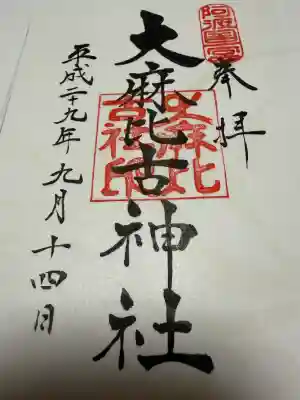 奉拝
阿波國一宮
大麻比古神社
大麻比古神社印
平成二十九年九月十四日